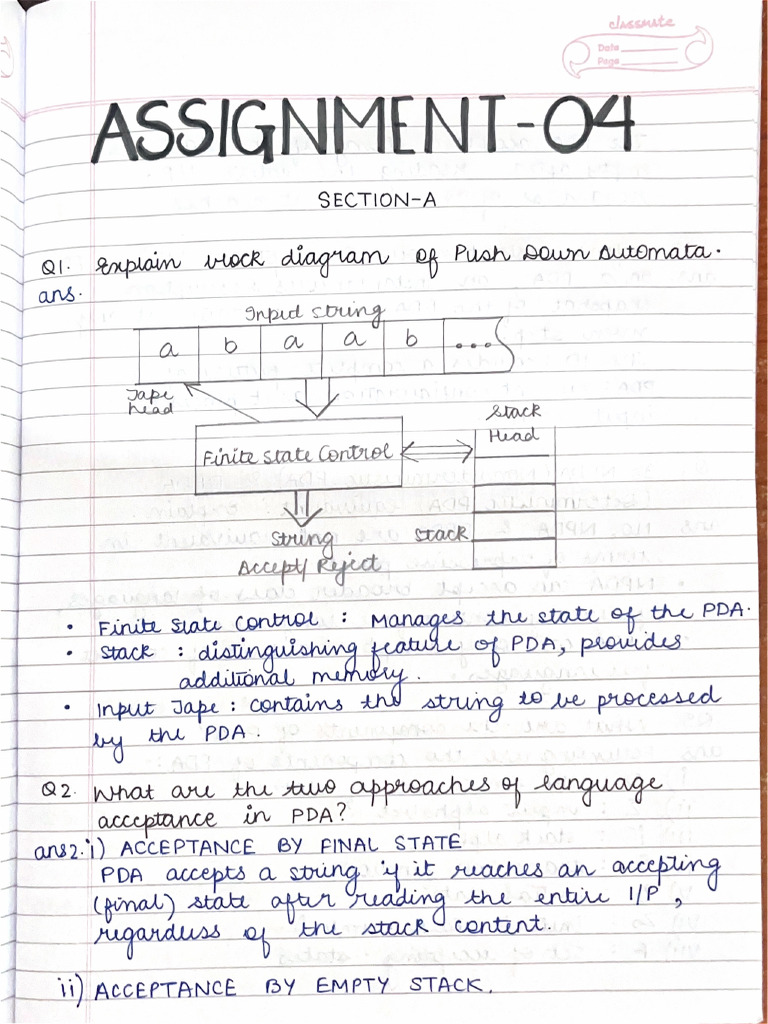 classmate
Date
Page
ASSIGNMENT-04
SECTION-A
Q1. Explain block diagram of Push Down Automata.
ans.
Input string
a b a a b ...
Tape head
Stack Head
Finite State Control
Stack
String
Accept/ Reject
• Finite State Control : Manages the state of the PDA.
• Stack : distinguishing feature of PDA, provides
additional memory.
• Input Tape : contains the string to be processed
by the PDA.
Q2. What are the two approaches of language
acceptance in PDA?
ans2. i) ACCEPTANCE BY FINAL STATE
PDA accepts a string if it reaches an accepting
(final) state after reading the entire I/P,
regardless of the stack content.
ii) ACCEPTANCE BY EMPTY STACK.